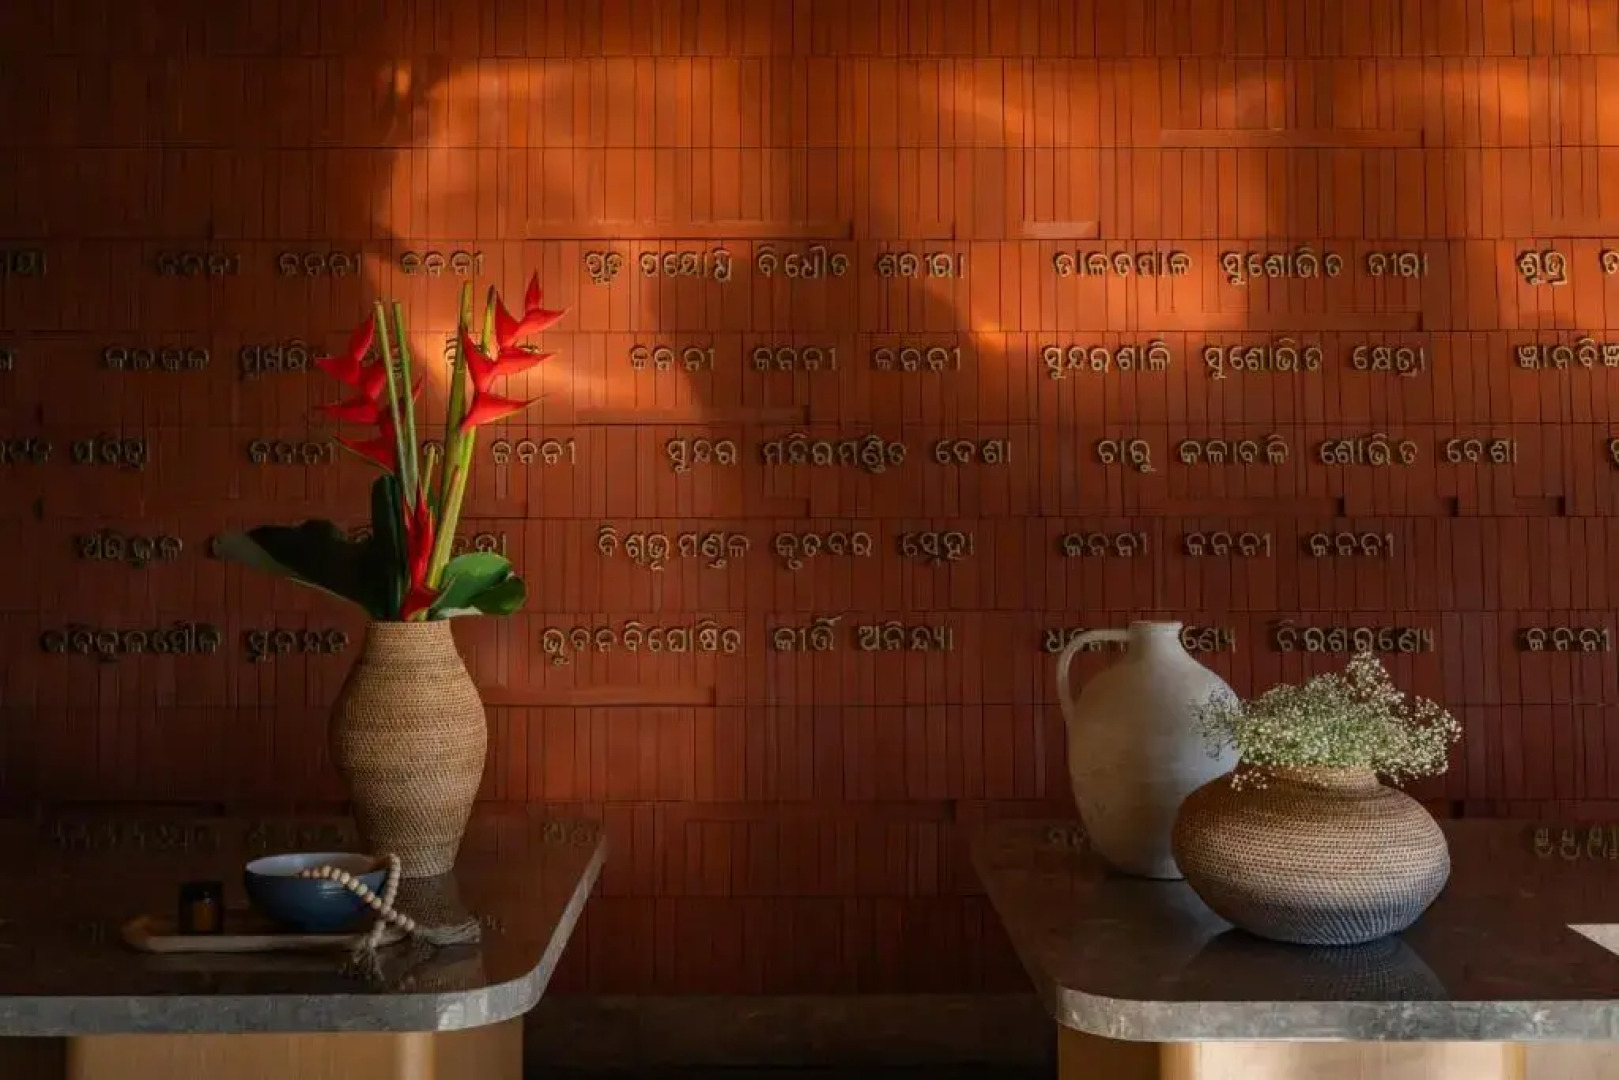 ଜନନୀ ଜନନୀ ଜନନୀ ପୂତ ପୟୋଧି ବିଧୌତ ଶରୀରା ତାଳତମାଳ ସୁଶୋଭିତ ତୀରା ଶୁଭ୍ର
କଳକଳ ଜନନୀ ଜନନୀ ଜନନୀ ସୁନ୍ଦରଶାଳି ସୁଶୋଭିତ କ୍ଷେତ୍ରା
ଜନନୀ ଜନନୀ ସୁନ୍ଦର ମନ୍ଦିରମଣ୍ଡିତ ଦେଶା ଚାରୁ କଳାବଳି ଶୋଭିତ ବେଶା
ବିଶ୍ୱଭୂମଣ୍ଡଳ କୃତବର ସ୍ନେହା ଜନନୀ ଜନନୀ ଜନନୀ
କବିକୁଳମୌଳି ସୁନନ୍ଦନ ଭୁବନବିଘୋଷିତ କୀର୍ତ୍ତି ଅନିନ୍ଦ୍ୟା ଚିରଶରଣ୍ୟେ ଜନନୀ